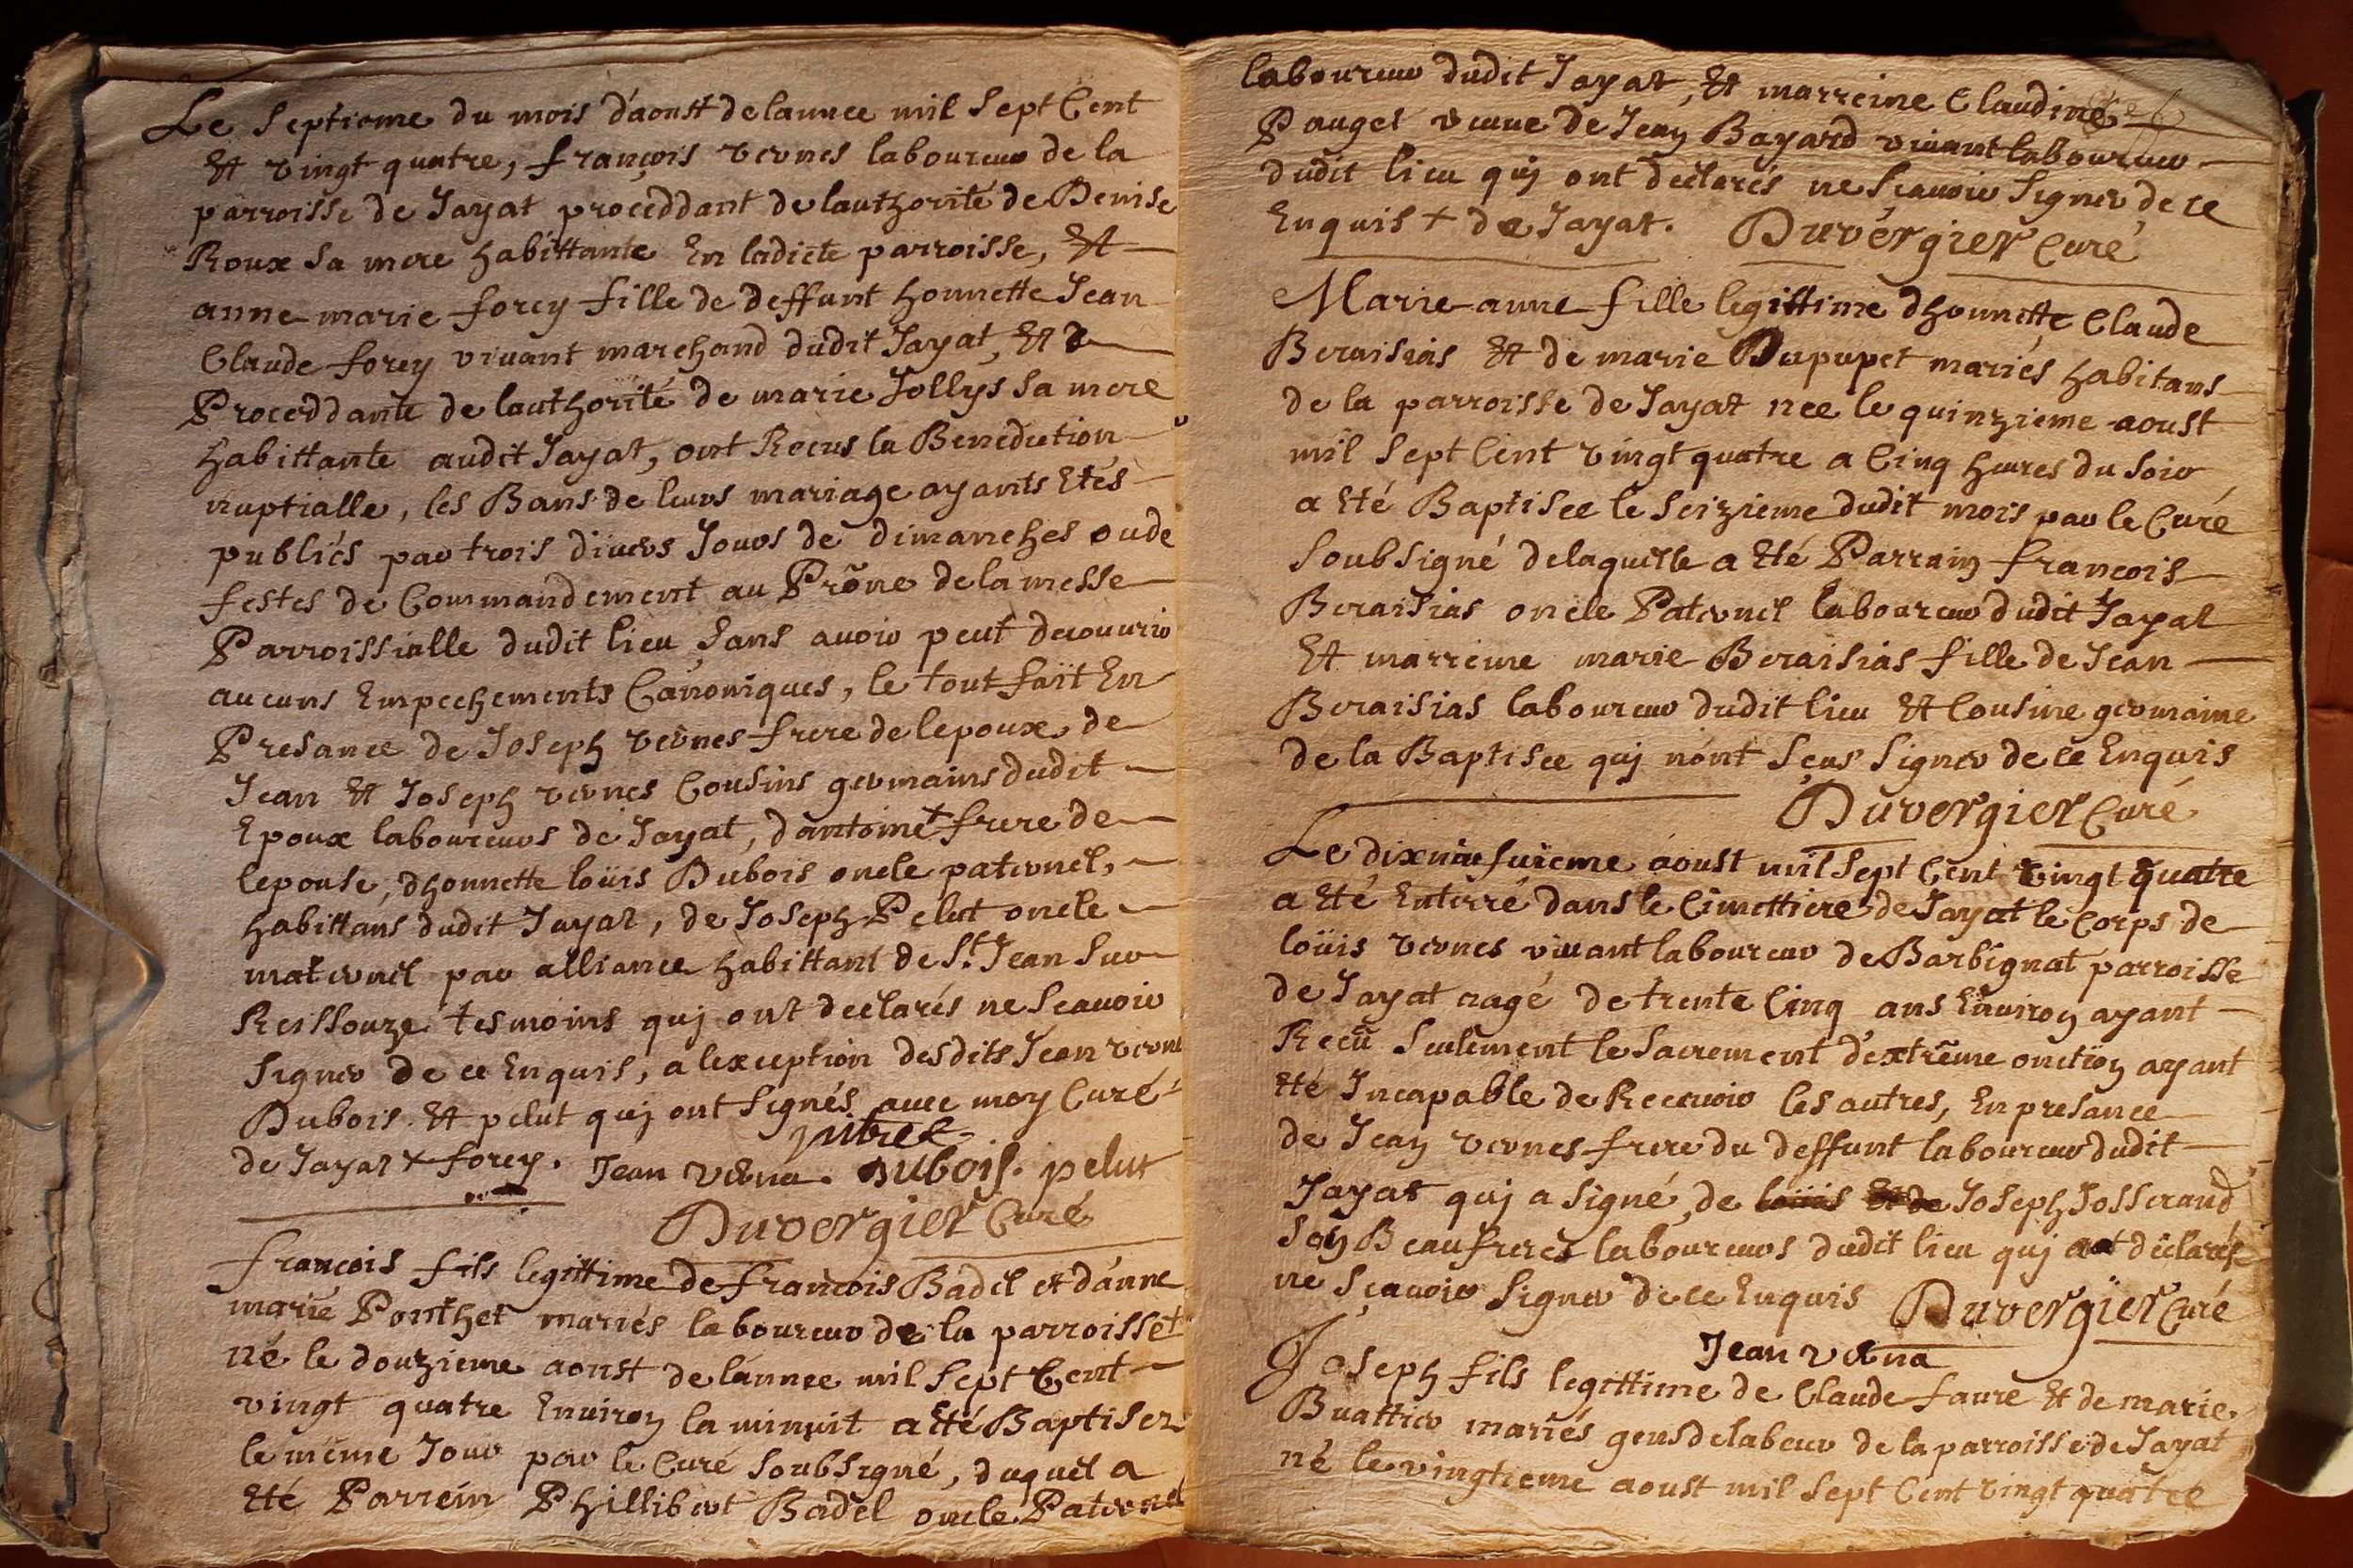 Le septiome du mois d'aoust de lannee mil sept Cent
Et vingt quatre, françois vernes laboureur de la
parroisse de Jayat procéddant de lauthorité de Denise
Roux sa mere habittante En ladicte parroisse, Et
anne-marie forey fille de deffunt honnette Jean
Claude forey vivant marchand dudit Jayat, Et
Proceddante de lauthorité de marie Jollys sa mere
habittante audit Jayat, ont Recus la Benediction
nuptialle, les Bans de leurs mariage ayants Etés
publiés par trois divers Jours de dimanches oude
festes de Commandement au Prône de la messe
Parroissialle dudit lieu sans avoir peut decouvrir
aucuns Empechements Canoniques, le tout fait En
Presance de Joseph vernes frere de lepoux, de
Jean Et Joseph vernes Cousins germains dudit
Epoux laboureurs de Jayat, dantoine + frere de
lepouse, dhonnette loüis Dubois oncle paternel,
habittans dudit Jayat, de Joseph Pelut oncle
maternel par alliance habittant de St. Jean Sur
Reissouze tesmoins quj ont déclarés ne Scavoir
signer de ce Enquis, a lexception desdits Jean verne
Dubois Et pelut quj ont signés avec moy Curé
de Jayat + forey. Jean verna. Dubois. pelut
Duvergier Curé
françois fils legittime de francois Badel et d'anne
marie Ponthet mariés laboureur de la parroisse +
né le douzieme aoust de lannee mil sept Cent
vingt quatre Environ la minuit a Eté Baptisez
le même Jour par le Curé soubsigné, duquel a
Eté Parrein Phillibert Badel oncle Paternel
laboureur dudit Jayat, Et marreine Claudine
Pauget veuve de Jean Bayard vivant laboureur
dudit lieu quj ont déclarés ne scavoir signer de ce
Enquis + de Jayat. Duvergier Curé
Marie-anne fille legittime dhonnette Claude
Beraisias Et de marie Dupupet mariés habitans
de la parroisse de Jayat nee le quinzieme aoust
mil sept Cent vingt quatre a Cinq heures du soir
a Eté Baptisee le seizieme dudit mois par le Curé
soubsigné delaquelle a Eté Parrain francois
Beraisias oncle Paternel laboureur dudit Jayat
Et marreine marie Beraisias fille de Jean
Beraisias laboureur dudit lieu Et Cousine germaine
de la Baptisee quj n'ont sçus signer de ce Enquis
Duvergier Curé
Le dixneufvieme aoust mil sept Cent vingt quatre
a Eté Enterré dans le Cimettiere de Jayat le Corps de
loüis vernes vivant laboureur de Barbignat parroisse
de Jayat aagé de trente Cinq ans Environ ayant
Recû seulement le sacrement d'extrême onction ayant
Eté Incapable de Recevoir les autres, En presance
de Jean vernes frere du deffunt laboureur dudit
Jayat quj a signé, de loüis Et de Joseph Josserand
son Beaufreres laboureurs dudit lieu quj ont déclarés
ne sçavoir signer de ce Enquis Duvergier Curé
Jean verna
Joseph fils legittime de Claude faure Et de marie
Buattier mariés gensdelabeur de la parroisse de Jayat
né le vingtieme aoust mil sept Cent vingt quatre